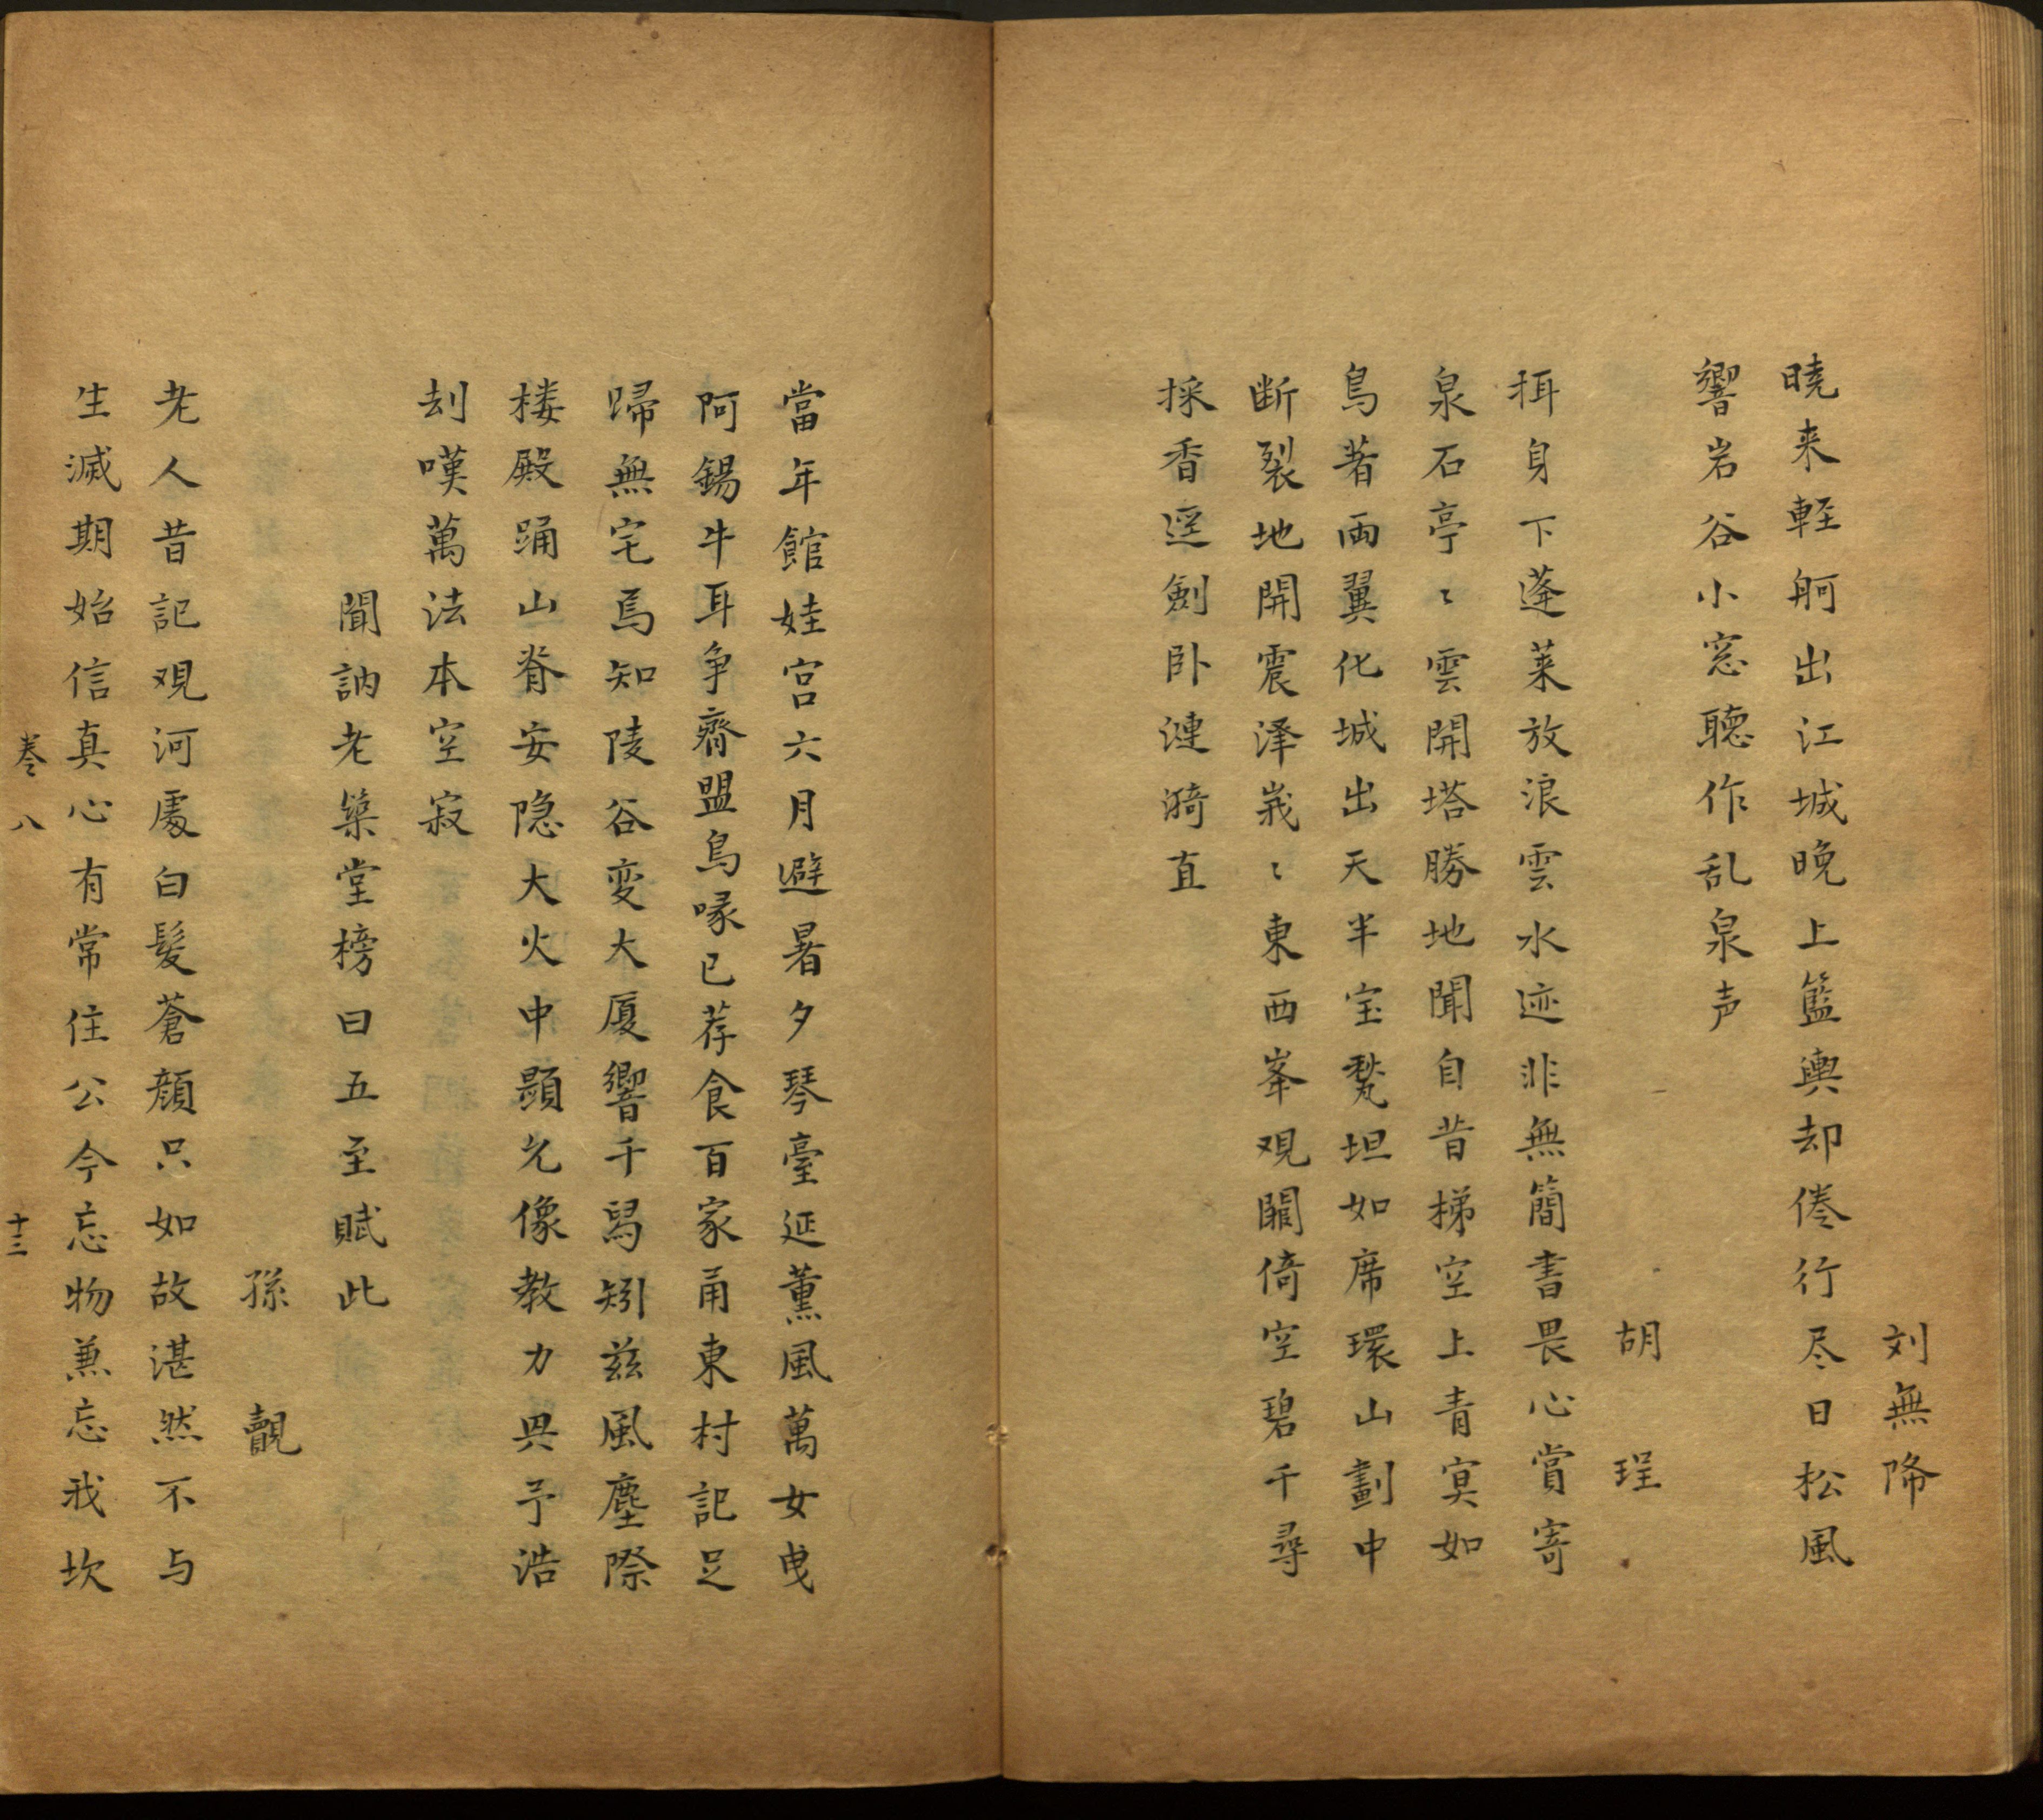 刘無降
曉来輊舸出江城晚上籃輿却倦行尽日松風
響岩谷小窓聽作乱泉声
胡珵
抯身下蓬莱放浪雲水迹非無簡書畏心賞寄
泉石亭〻雲開塔勝地聞自昔梯空上青冥如
鳥著兩翼化城出天半宝甃坦如席環山劃中
断裂地開震泽峩〻東西峯观闕倚空碧千尋
採香逕劍卧漣漪直
當年館娃宫六月避暑夕琴臺延薫風萬女曳
阿錫牛耳争齊盟鳥喙已荐食百家甬東村記足
歸無宅焉知陵谷变大厦響千舄矧兹風塵際
楼殿踊山脊安隐大火中顕允像教力畀予浩
刼嘆萬法本空寂
聞訥老築堂榜曰五至賦此
孫觀
老人昔記观河處白髮蒼顔只如故湛然不与
生滅期始信真心有常住公今忘物兼忘我坎
卷八
十三